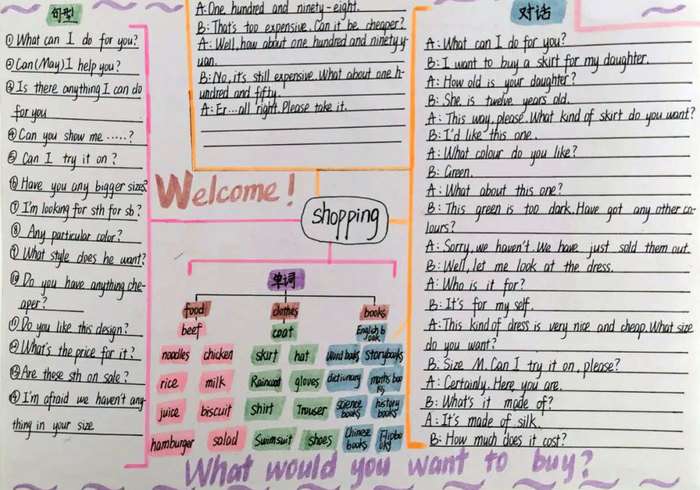 句型
①What can I do for you?
②Can(May)I help you?
③Is there anything I can do
for you
④Can you show me .....?
⑤Can I try it on?
⑥Have you any bigger sizes?
⑦I'm looking for sth for sb?
⑧Any particular color?
⑨What style does he want?
⑩Do you have anything che-
aper?
⑪Do you like this design?
⑫What's the price for it?
⑬Are these sth on sale?
⑭I'm afraid we haven't any
thing in your size
A:One hundred and ninety-eight.
B:That's too expensive.Can it be cheaper?
A:Well,how about one hundred and ninety y-
uan.
B:No,it's still expensive.What about one h-
undred and fifty.
A:Er...all right.Please take it.
Welcome!
shopping
单词
food
clothes
books
beef
coat
English b
ook
noodles
chicken
skirt
hat
word books
storybooks
rice
milk
Raincoat
gloves
dictionary
maths boo
ks
juice
biscuit
shirt
Trouser
science
books
history
books
hamburger
salad
Swimsuit
shoes
Chinese
books
Flipbo
oky
对话
A:What can I do for you?
B:I want to buy a skirt for my daughter.
A:How old is your daughter?
B:She is twelve years old.
A:This way,please.What kind of skirt do you want?
B:I'd like this one.
A:What colour do you like?
B:Green.
A:What about this one?
B:This green is too dark.Have got any other co-
lours?
A:Sorry,we haven't.We have just sold them out.
B:Well,let me look at the dress.
A:Who is it for?
B:It's for my self.
A:This kind of dress is very nice and cheap.What size
do you want?
B:Size M.Can I try it on,please?
A:Certainly.Here you are.
B:What's it made of?
A:It's made of silk.
B:How much does it cost?
What would you want to buy?